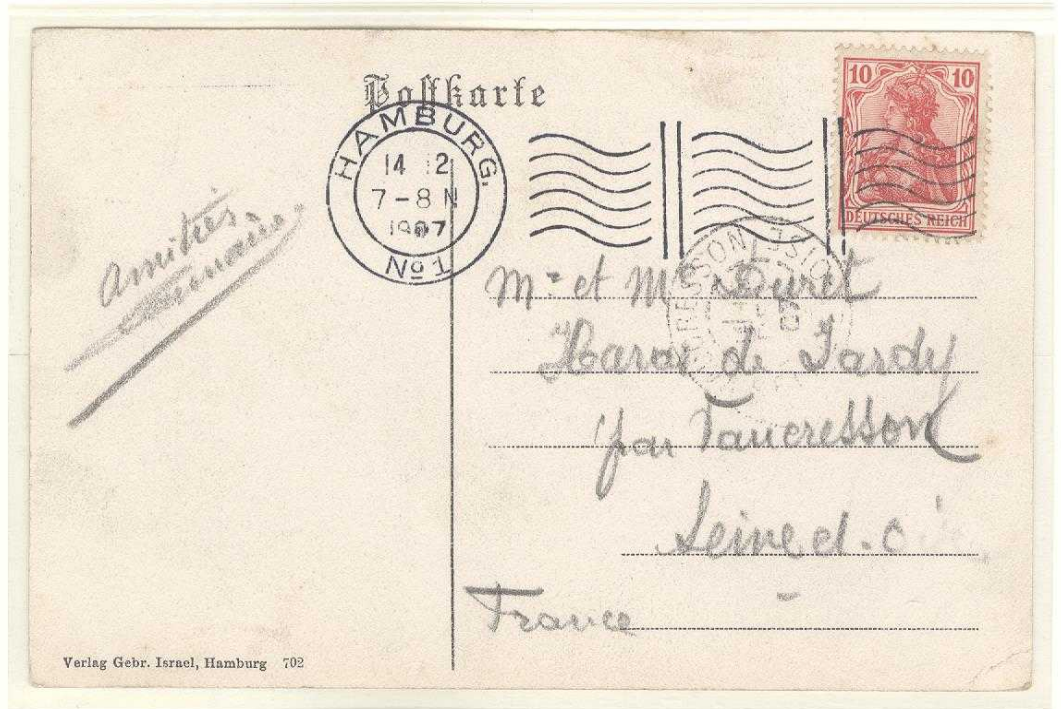 Postkarte
HAMBURG.
14 12
7-8 N
1907
No 1
10 10
DEUTSCHES REICH
VAUCRESSON
Amitiés
Mr et Me Duret
Haras de Jardy
par Vaucresson
Seine et-Oise
France
Verlag Gebr. Israel, Hamburg 702